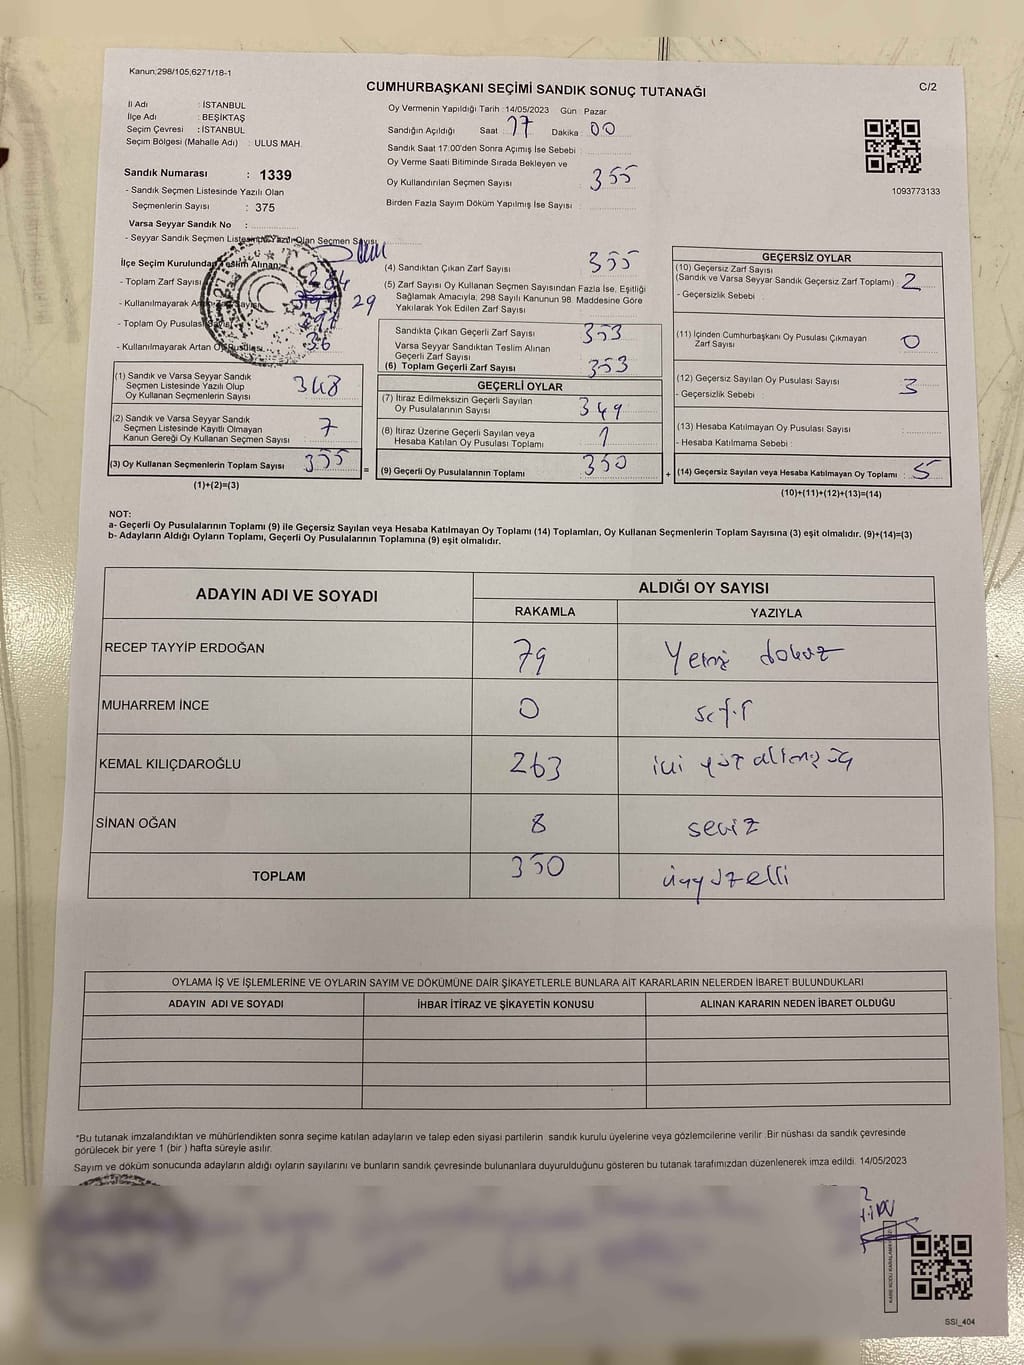 Kanun;298/105,6271/18-1
CUMHURBAŞKANI SEÇİMİ SANDIK SONUÇ TUTANAĞI
C/2
İl Adı : İSTANBUL
İlçe Adı : BEŞİKTAŞ
Seçim Çevresi : İSTANBUL
Seçim Bölgesi (Mahalle Adı) : ULUS MAH.
Sandık Numarası : 1339
- Sandık Seçmen Listesinde Yazılı Olan
Seçmenlerin Sayısı : 375
Varsa Seyyar Sandık No :
- Seyyar Sandık Seçmen Listesinde Yazılı Olan Seçmen Sayısı
Oy Vermenin Yapıldığı Tarih : 14/05/2023 Gün : Pazar
Sandığın Açıldığı Saat 17 Dakika : 00
Sandık Saat 17:00'den Sonra Açımış İse Sebebi :
Oy Verme Saati Bitiminde Sırada Bekleyen ve
Oy Kullandırılan Seçmen Sayısı 355
Birden Fazla Sayım Döküm Yapılmış İse Sayısı :
1093773133
İlçe Seçim Kurulundan Teslim Alınan
- Toplam Zarf Sayısı
- Kullanılmayarak Artan Zarf Sayısı 29
- Toplam Oy Pusulası Sayısı
- Kullanılmayarak Artan Oy Pusulası 36
(1) Sandık ve Varsa Seyyar Sandık
Seçmen Listesinde Yazılı Olup
Oy Kullanan Seçmenlerin Sayısı 348
(2) Sandık ve Varsa Seyyar Sandık
Seçmen Listesinde Kayıtlı Olmayan
Kanun Gereği Oy Kullanan Seçmen Sayısı 7
(3) Oy Kullanan Seçmenlerin Toplam Sayısı 355 =
(1)+(2)=(3)
(4) Sandıktan Çıkan Zarf Sayısı 355
(5) Zarf Sayısı Oy Kullanan Seçmen Sayısından Fazla İse, Eşitliği
Sağlamak Amacıyla; 298 Sayılı Kanunun 98. Maddesine Göre
Yakılarak Yok Edilen Zarf Sayısı
Sandıkta Çıkan Geçerli Zarf Sayısı 353
Varsa Seyyar Sandıktan Teslim Alınan
Geçerli Zarf Sayısı
(6) Toplam Geçerli Zarf Sayısı 353
GEÇERLİ OYLAR
(7) İtiraz Edilmeksizin Geçerli Sayılan
Oy Pusulalarının Sayısı : 349
(8) İtiraz Üzerine Geçerli Sayılan veya
Hesaba Katılan Oy Pusulası Toplamı 1
(9) Geçerli Oy Pusulalarınnın Toplamı 350 +
GEÇERSİZ OYLAR
(10) Geçersiz Zarf Sayısı
(Sandık ve Varsa Seyyar Sandık Geçersiz Zarf Toplamı) : 2
- Geçersizlik Sebebi :
(11) İçinden Cumhurbaşkanı Oy Pusulası Çıkmayan
Zarf Sayısı 0
(12) Geçersiz Sayılan Oy Pusulası Sayısı 3
- Geçersizlik Sebebi :
(13) Hesaba Katılmayan Oy Pusulası Sayısı
- Hesaba Katılmama Sebebi :
(14) Geçersiz Sayılan veya Hesaba Katılmayan Oy Toplamı : 5
(10)+(11)+(12)+(13)=(14)
NOT:
a- Geçerli Oy Pusulalarının Toplamı (9) ile Geçersiz Sayılan veya Hesaba Katılmayan Oy Toplamı (14) Toplamları, Oy Kullanan Seçmenlerin Toplam Sayısına (3) eşit olmalıdır. (9)+(14)=(3)
b- Adayların Aldığı Oyların Toplamı, Geçerli Oy Pusulalarının Toplamına (9) eşit olmalıdır.
ADAYIN ADI VE SOYADI
ALDIĞI OY SAYISI
RAKAMLA YAZIYLA
RECEP TAYYİP ERDOĞAN 79 Yetmiş dokuz
MUHARREM İNCE 0 sıfır
KEMAL KILIÇDAROĞLU 263 iki yüz altmış üç
SİNAN OĞAN 8 sekiz
TOPLAM 350 üçyüzelli
OYLAMA İŞ VE İŞLEMLERİNE VE OYLARIN SAYIM VE DÖKÜMÜNE DAİR ŞİKAYETLERLE BUNLARA AİT KARARLARIN NELERDEN İBARET BULUNDUKLARI
ADAYIN ADI VE SOYADI İHBAR İTİRAZ VE ŞİKAYETİN KONUSU ALINAN KARARIN NEDEN İBARET OLDUĞU
*Bu tutanak imzalandıktan ve mühürlendikten sonra seçime katılan adayların ve talep eden siyasi partilerin sandık kurulu üyelerine veya gözlemcilerine verilir .Bir nüshası da sandık çevresinde
görülecek bir yere 1 (bir ) hafta süreyle asılır.
Sayım ve döküm sonucunda adayların aldığı oyların sayılarını ve bunların sandık çevresinde bulunanlara duyurulduğunu gösteren bu tutanak tarafımızdan düzenlenerek imza edildi. 14/05/2023
SSI_404